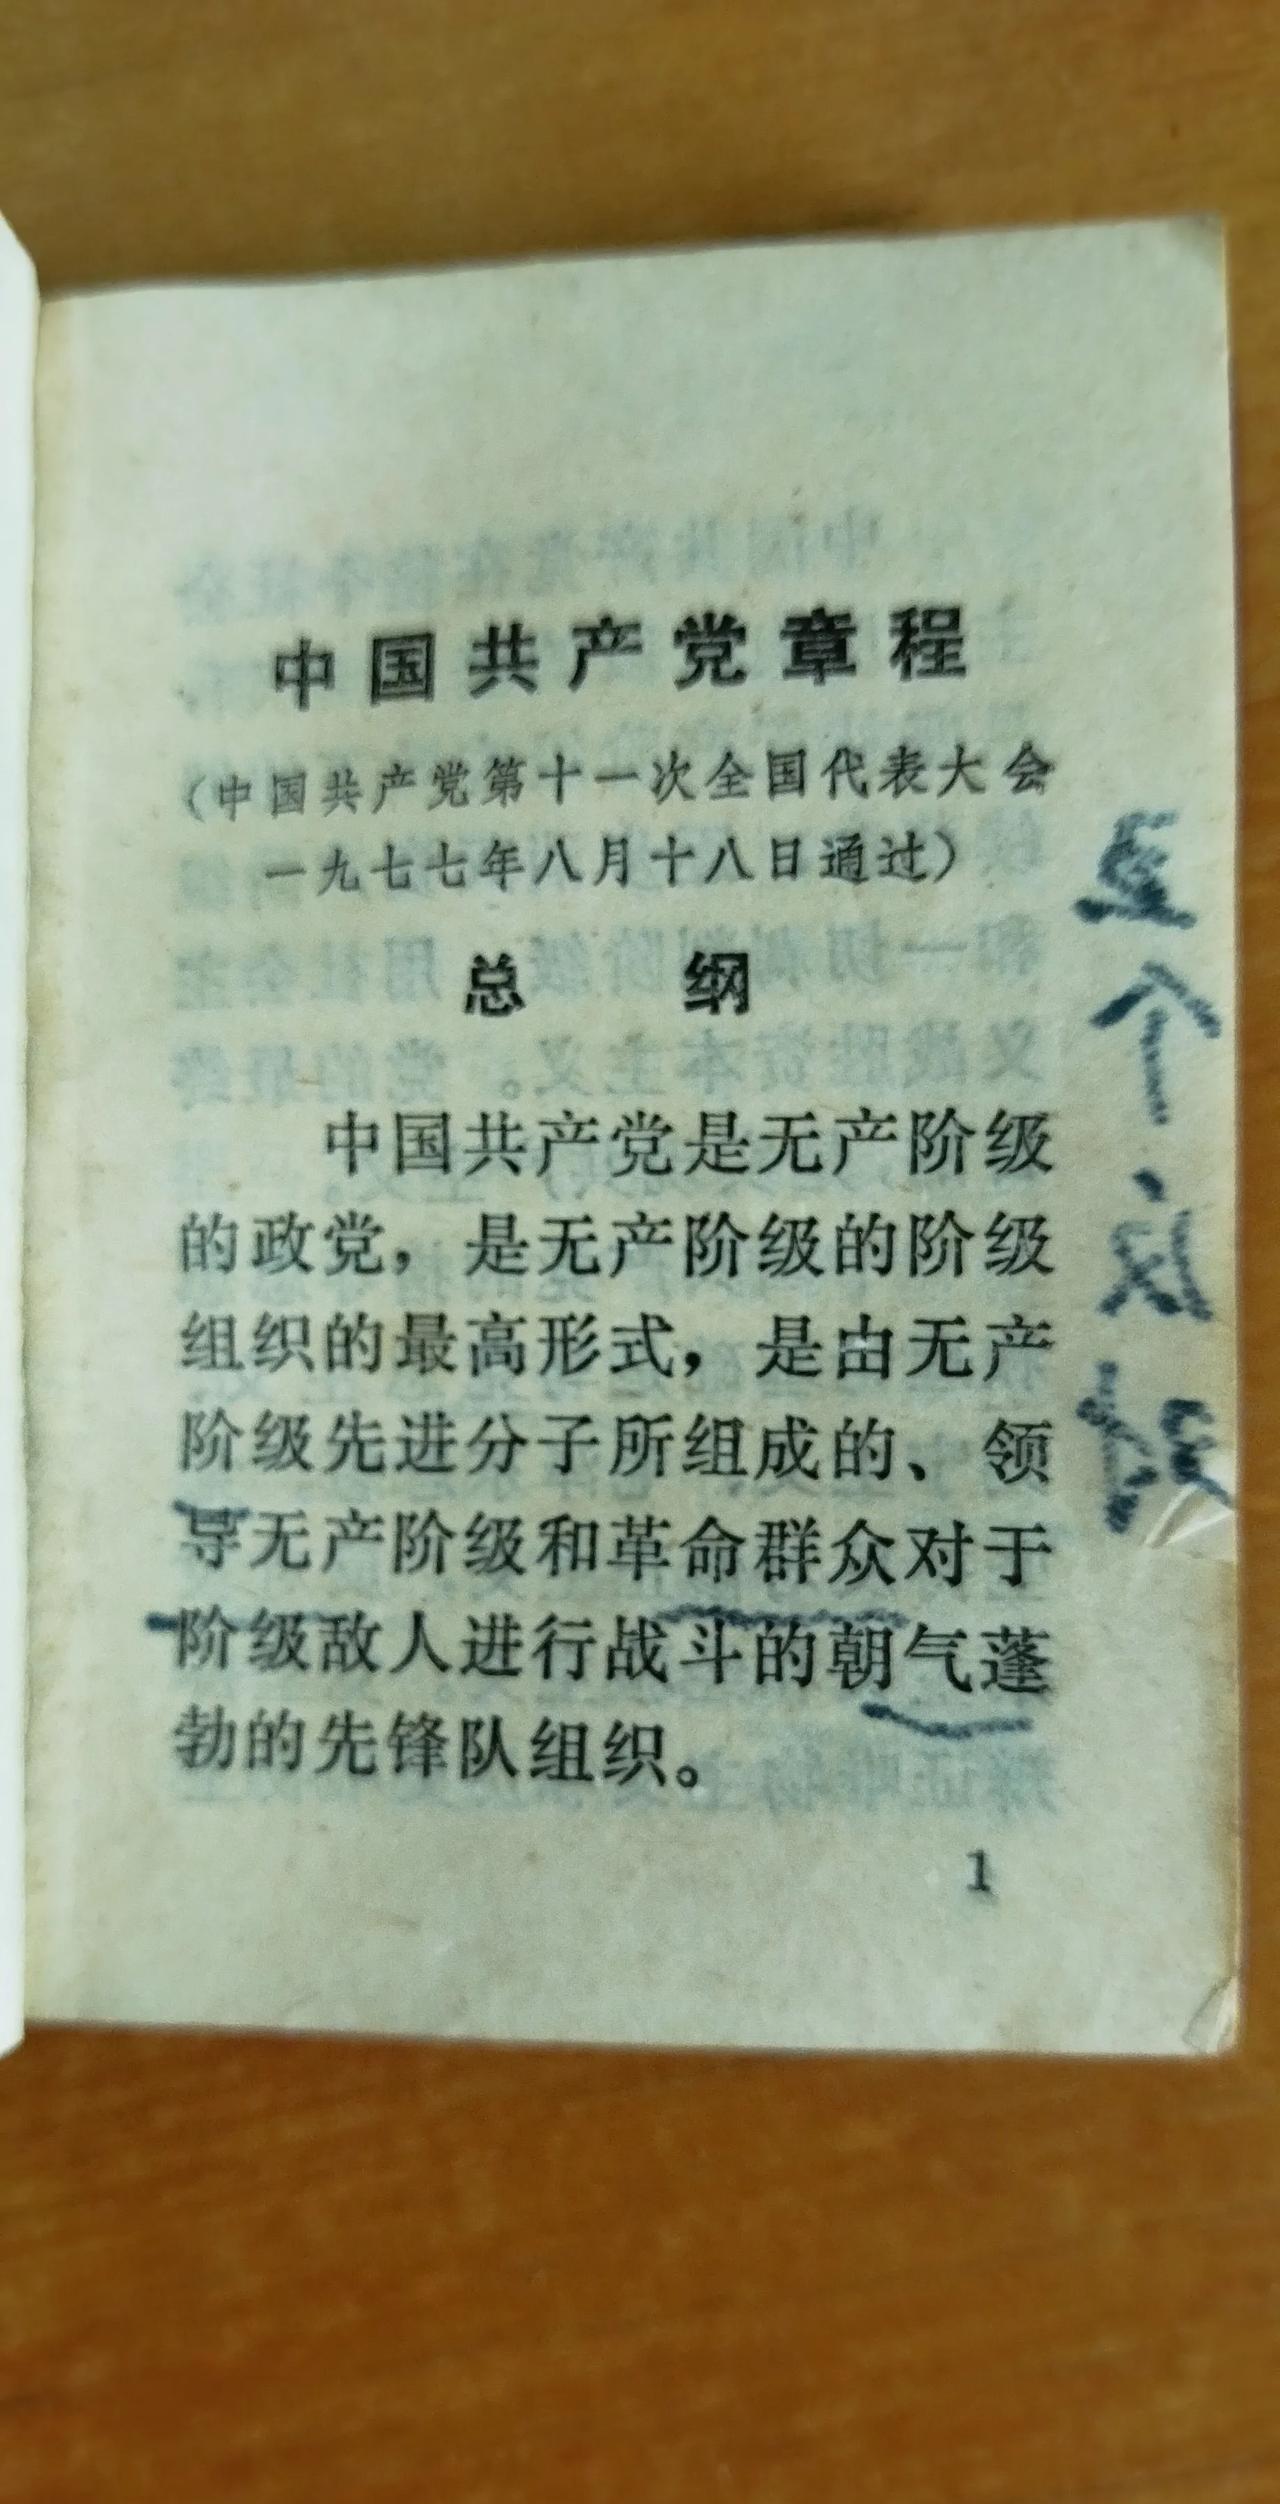 中国共产党章程
（中国共产党第十一次全国代表大会
一九七七年八月十八日通过）
总纲
中国共产党是无产阶级
的政党，是无产阶级的阶级
组织的最高形式，是由无产
阶级先进分子所组成的、领
导无产阶级和革命群众对于
阶级敌人进行战斗的朝气蓬
勃的先锋队组织。
1